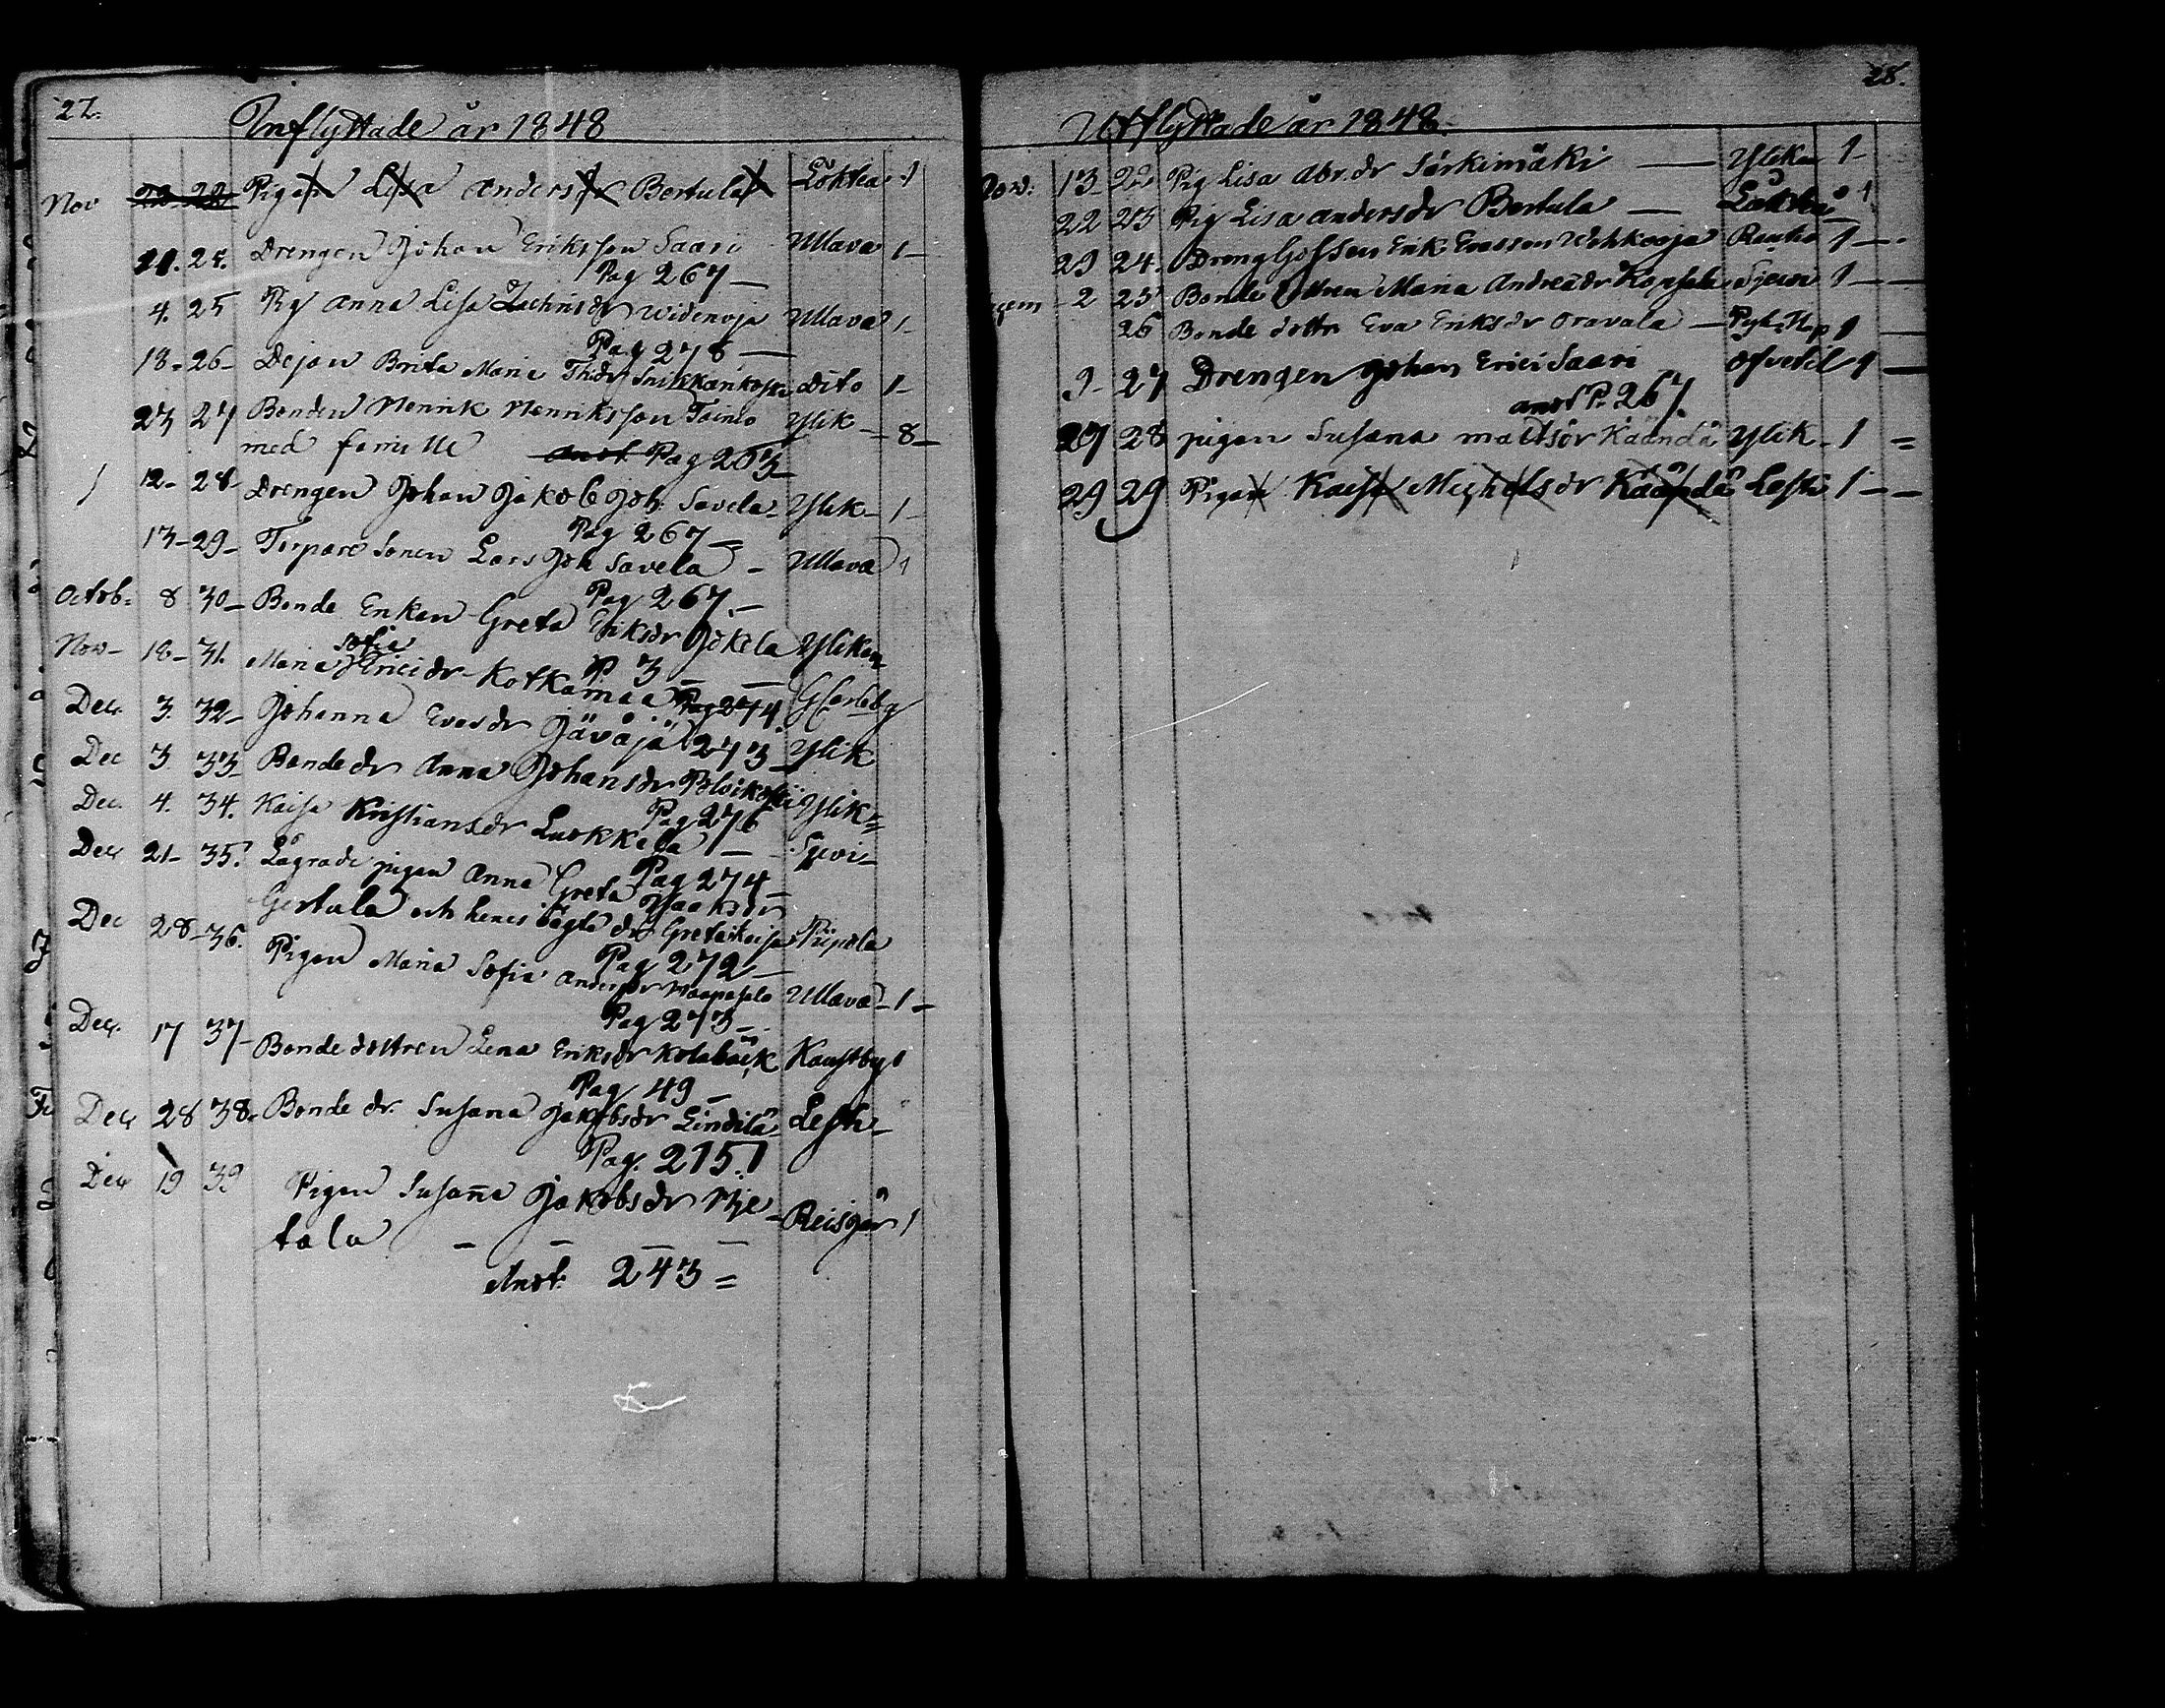 27.
Inflyttade år 1848
Nov 22 Pigan Lisa Anders dr Bertula Lòktea 1
21. 24. Drengen Johan Eriksson Saari Ullava 1-
Pag 267 -
4. 25 Pig Anna Lisa Widenoja Ullava 1-
Pag 278 -
18- 26- Dejan Brita Maria dito 1-
23 27 Bonden Henrik Henriksson Ylik - 8-
med famille anot. Pag 263
12- 28- Drengen Johan Jakob Joh. Savela- Ylik- 1-
Pag 267 -
13- 29- Torpare Sonen Lars Joh Savela - Ullava 1
Pag 267. -
Octob: 8 30- Bonde Enkan Greta Eriksdr Jokela Ylikan
P 3 - -
Nov- 18- 31. Maria Sofia Ericidr Kotkamaa Pag 274. G Carleby
Dec. 3. 32- Johanna Evasdr Jäväjä 273 Ylik
Dec 3 33- Bonde dr Anna Johansdr Ylik=
Pag 276
Dec. 4. 34. Kaisa Kristiansdr Luokkala - Sjevi-
Pag 274 -
Dec 21- 35. Lägrade pigan Anna Greta Isaaksdr
Gertala och henes oägta dr Greta Kajsa Piipola
Pag 272 -
Dec 28- 36. Pigan Maria Sofia Andersdr Ullava- 1-
Pag 273 -
Dec. 17 37- Bonde dottren Lena Eriksdr Kolabäck Kaustby 1
Pag 49 -
Dec 28 38. Bonde dr. Susana Jakobsdr Lindilä- Lesti-
Pag. 215. 1
Dec 19 39 Pigan Susana Jakobsdr Hie
tala - - - - Reisjär 1
Anot. 243=
28.
Utflyttade år 1848.
Nov: 13- 22 Pig Lisa Abr.dr Särkimäki - Ylikan 1-
22 23 Pig Lisa Andersdr Bertula - Lòktea 1
29 24. Dreng Gossen Erik Evasson Rautio 1-
2 25 Bonde dottren Maria Andreædr Kopsala Sjewi 1-
26 Bonde dottr Eva Eriksdr Oravala - 1
9- 27 Drengen Johan Erici Saari öfvetil 1
anot P. 267.
27 28 pigan Susana Mattsdr Käändä Ylik- 1 =
29 29 Pigan Kaisa Michelsdr Käändä Lesti 1-